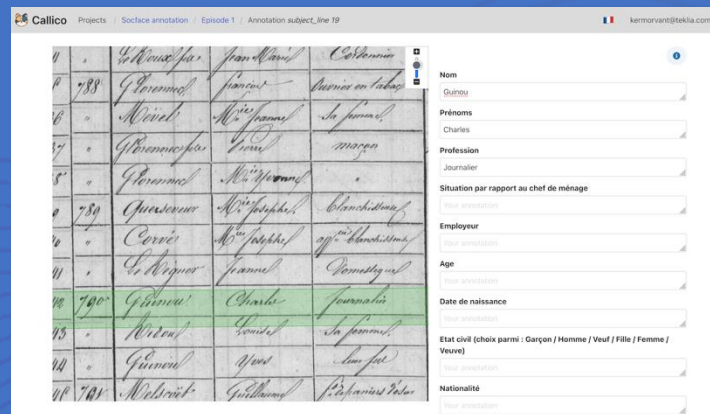 Callico Projects / Socface annotation / Episode 1 / Annotation subject_line 19
kermorvant@teklia.com
Le Roux fse Jean Marie Cordonnier
788 Glorennec François Ouvrier en tabac
" Mével Mie Jeanne Sa femme
" Glorennec fils Pierre maçon
" Glorennec Mie Yvonne "
789 Querseveur Mie Josèphe blanchisseuse
" Corvé Mie Josèphe blanchisseuse
41 " Le Bignor Jeanne Domestique
42 790 Guinou Charles Journalier
43 " Louise Sa femme
44 " Guinou Yves leur fils
791 Melscoët Guillaume
Nom
Guinou
Prénoms
Charles
Profession
Journalier
Situation par rapport au chef de ménage
Your annotation
Employeur
Your annotation
Age
Your annotation
Date de naissance
Your annotation
Etat civil (choix parmi : Garçon / Homme / Veuf / Fille / Femme /
Veuve)
Your annotation
Nationalité
Your annotation